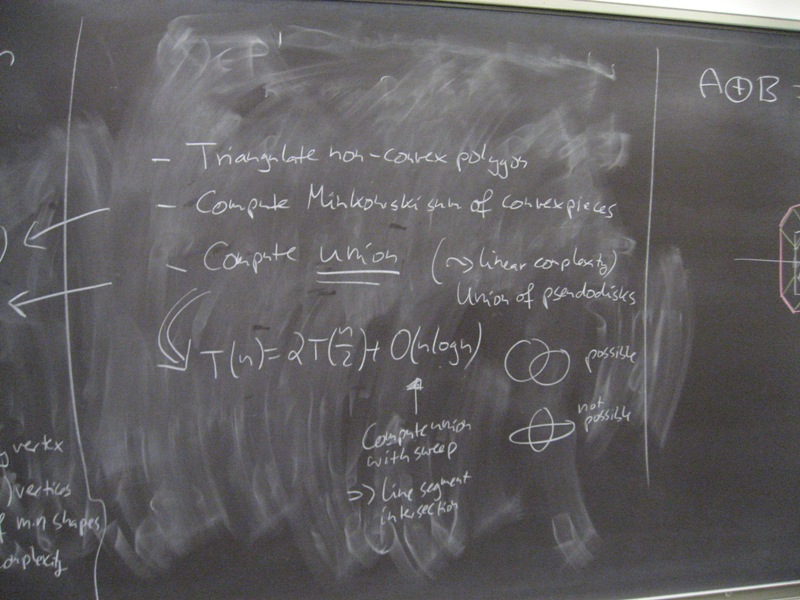 - Triangulate non-convex polygon
- Compute Minkowski sum of convex pieces
- Compute union (~> linear complexity)
Union of pseudodisks
T(n) = 2T(n/2) + O(n log n)
possible
not
possible
Compute union
with sweep
=> line segment
intersection
A⊕B =
vertex
) vertices
shapes
omplexity